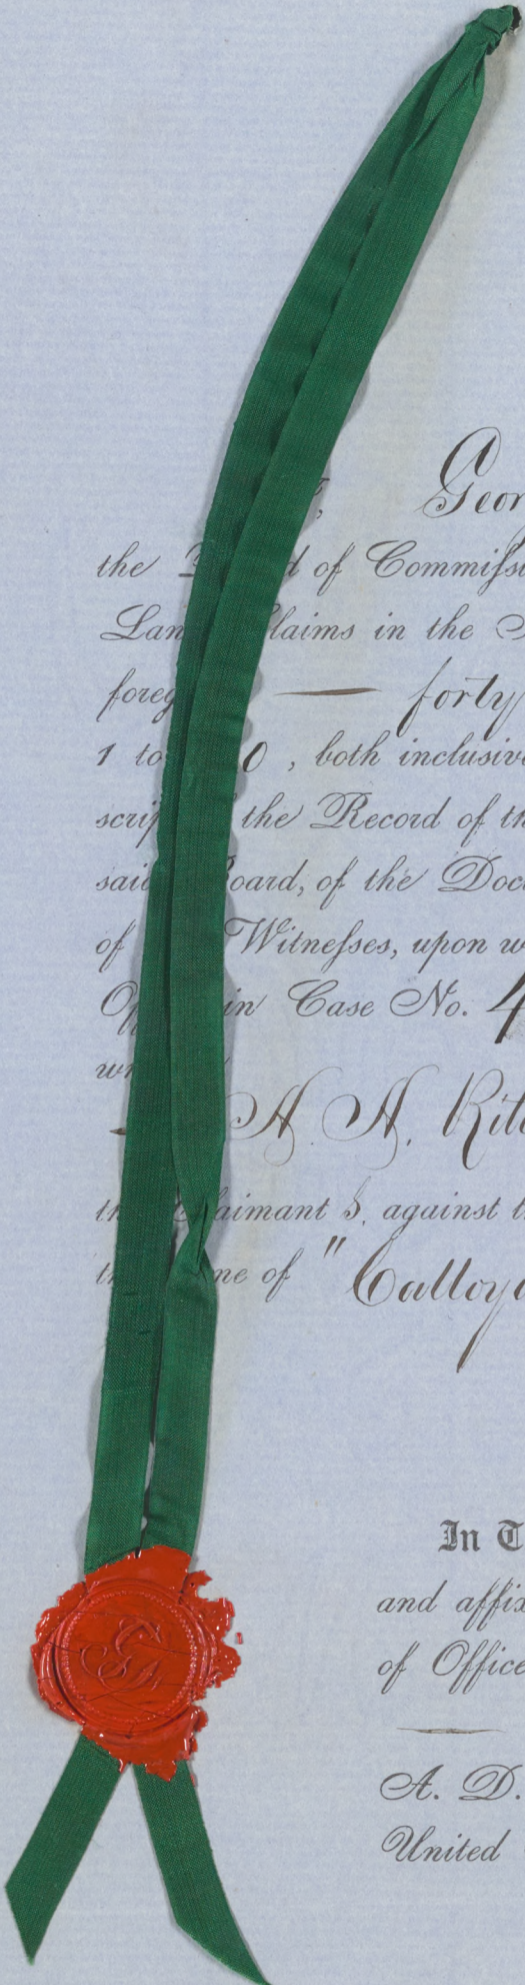 Geor
the d of Commissi
Lan laims in the S
foreg — forty
1 to 0, both inclusive
scrip the Record of th
said oard, of the Doc
of Witnesses, upon w
Op in Case No. 4
wh
H. H. Rit
th laimant s. against t
th me of "Calloy
In T
and affix
of Office
A. D.
United